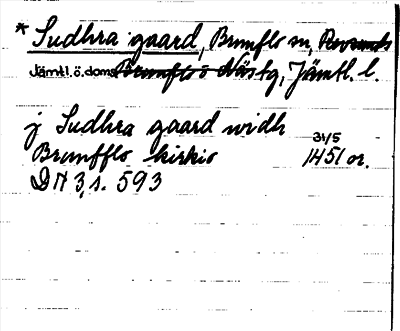 * Sudhra gaard, Brunflo sn, Revsunds
Jämtl. ö. doms Brunflo o Näs tg, Jämtl. l.
j Sudhra gaard widh
Brunfflo kirkio 31/5 1451 or.
DN 3, s. 593